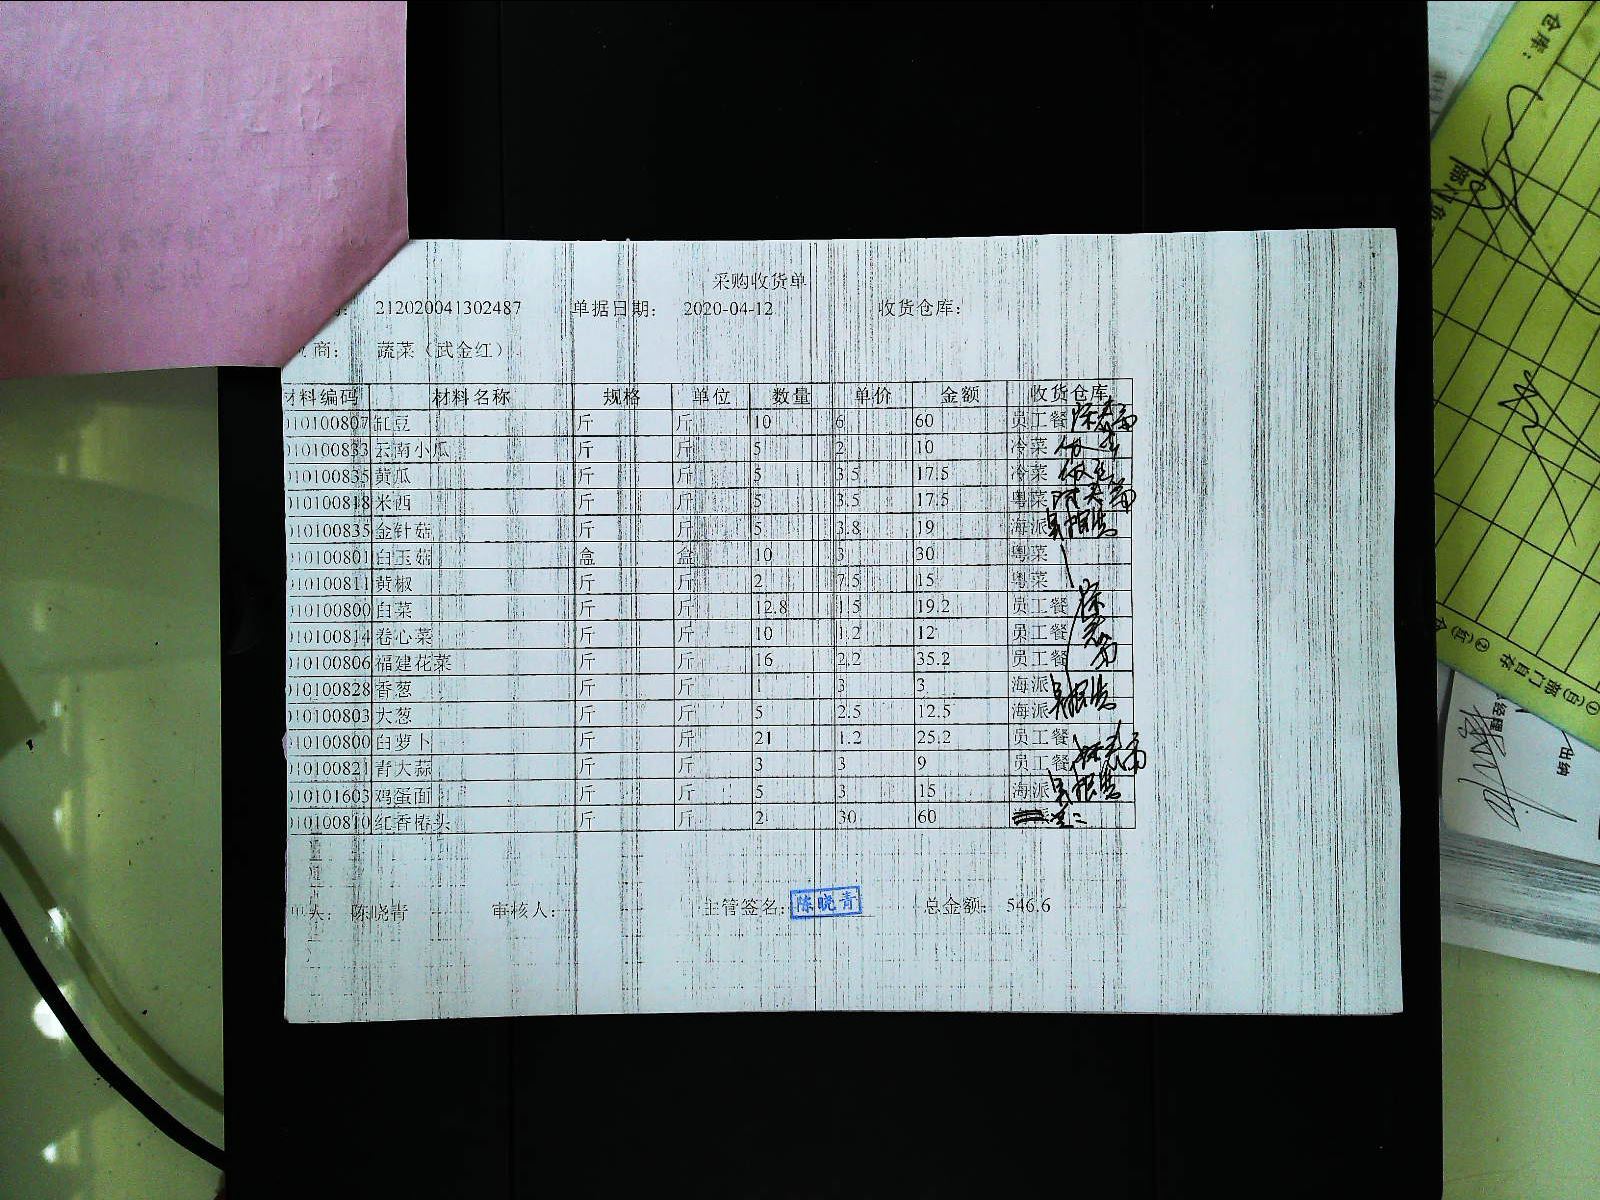 采购收货单
212020041302487 单据日期: 2020-04-12 收货仓库:
商: 蔬菜（武金红）
材料编码 材料名称 规格 单位 数量 单价 金额 收货仓库
010100807 缸豆 斤 斤 10 6 60 员工餐
010100833 云南小瓜 斤 斤 5 2 10 冷菜
010100835 黄瓜 斤 斤 5 3.5 17.5 冷菜
010100818 米西 斤 斤 5 3.5 17.5 粤菜
010100835 金针菇 斤 斤 5 3.8 19 海派
010100801 白玉菇 盒 盒 10 3 30 粤菜
010100811 黄椒 斤 斤 2 7.5 15 粤菜
010100800 白菜 斤 斤 12.8 1.5 19.2 员工餐
010100814 卷心菜 斤 斤 10 1.2 12 员工餐
010100806 福建花菜 斤 斤 16 2.2 35.2 员工餐
010100828 香葱 斤 斤 1 3 3 海派
010100803 大葱 斤 斤 5 2.5 12.5 海派
010100800 白萝卜 斤 斤 21 1.2 25.2 员工餐
010100821 青大蒜 斤 斤 3 3 9 员工餐
010101603 鸡蛋面 斤 斤 5 3 15 海派
010100810 红香椿头 斤 斤 2 30 60
人: 陈晓青 审核人: 主管签名: 陈晓青 总金额: 546.6
仓库: